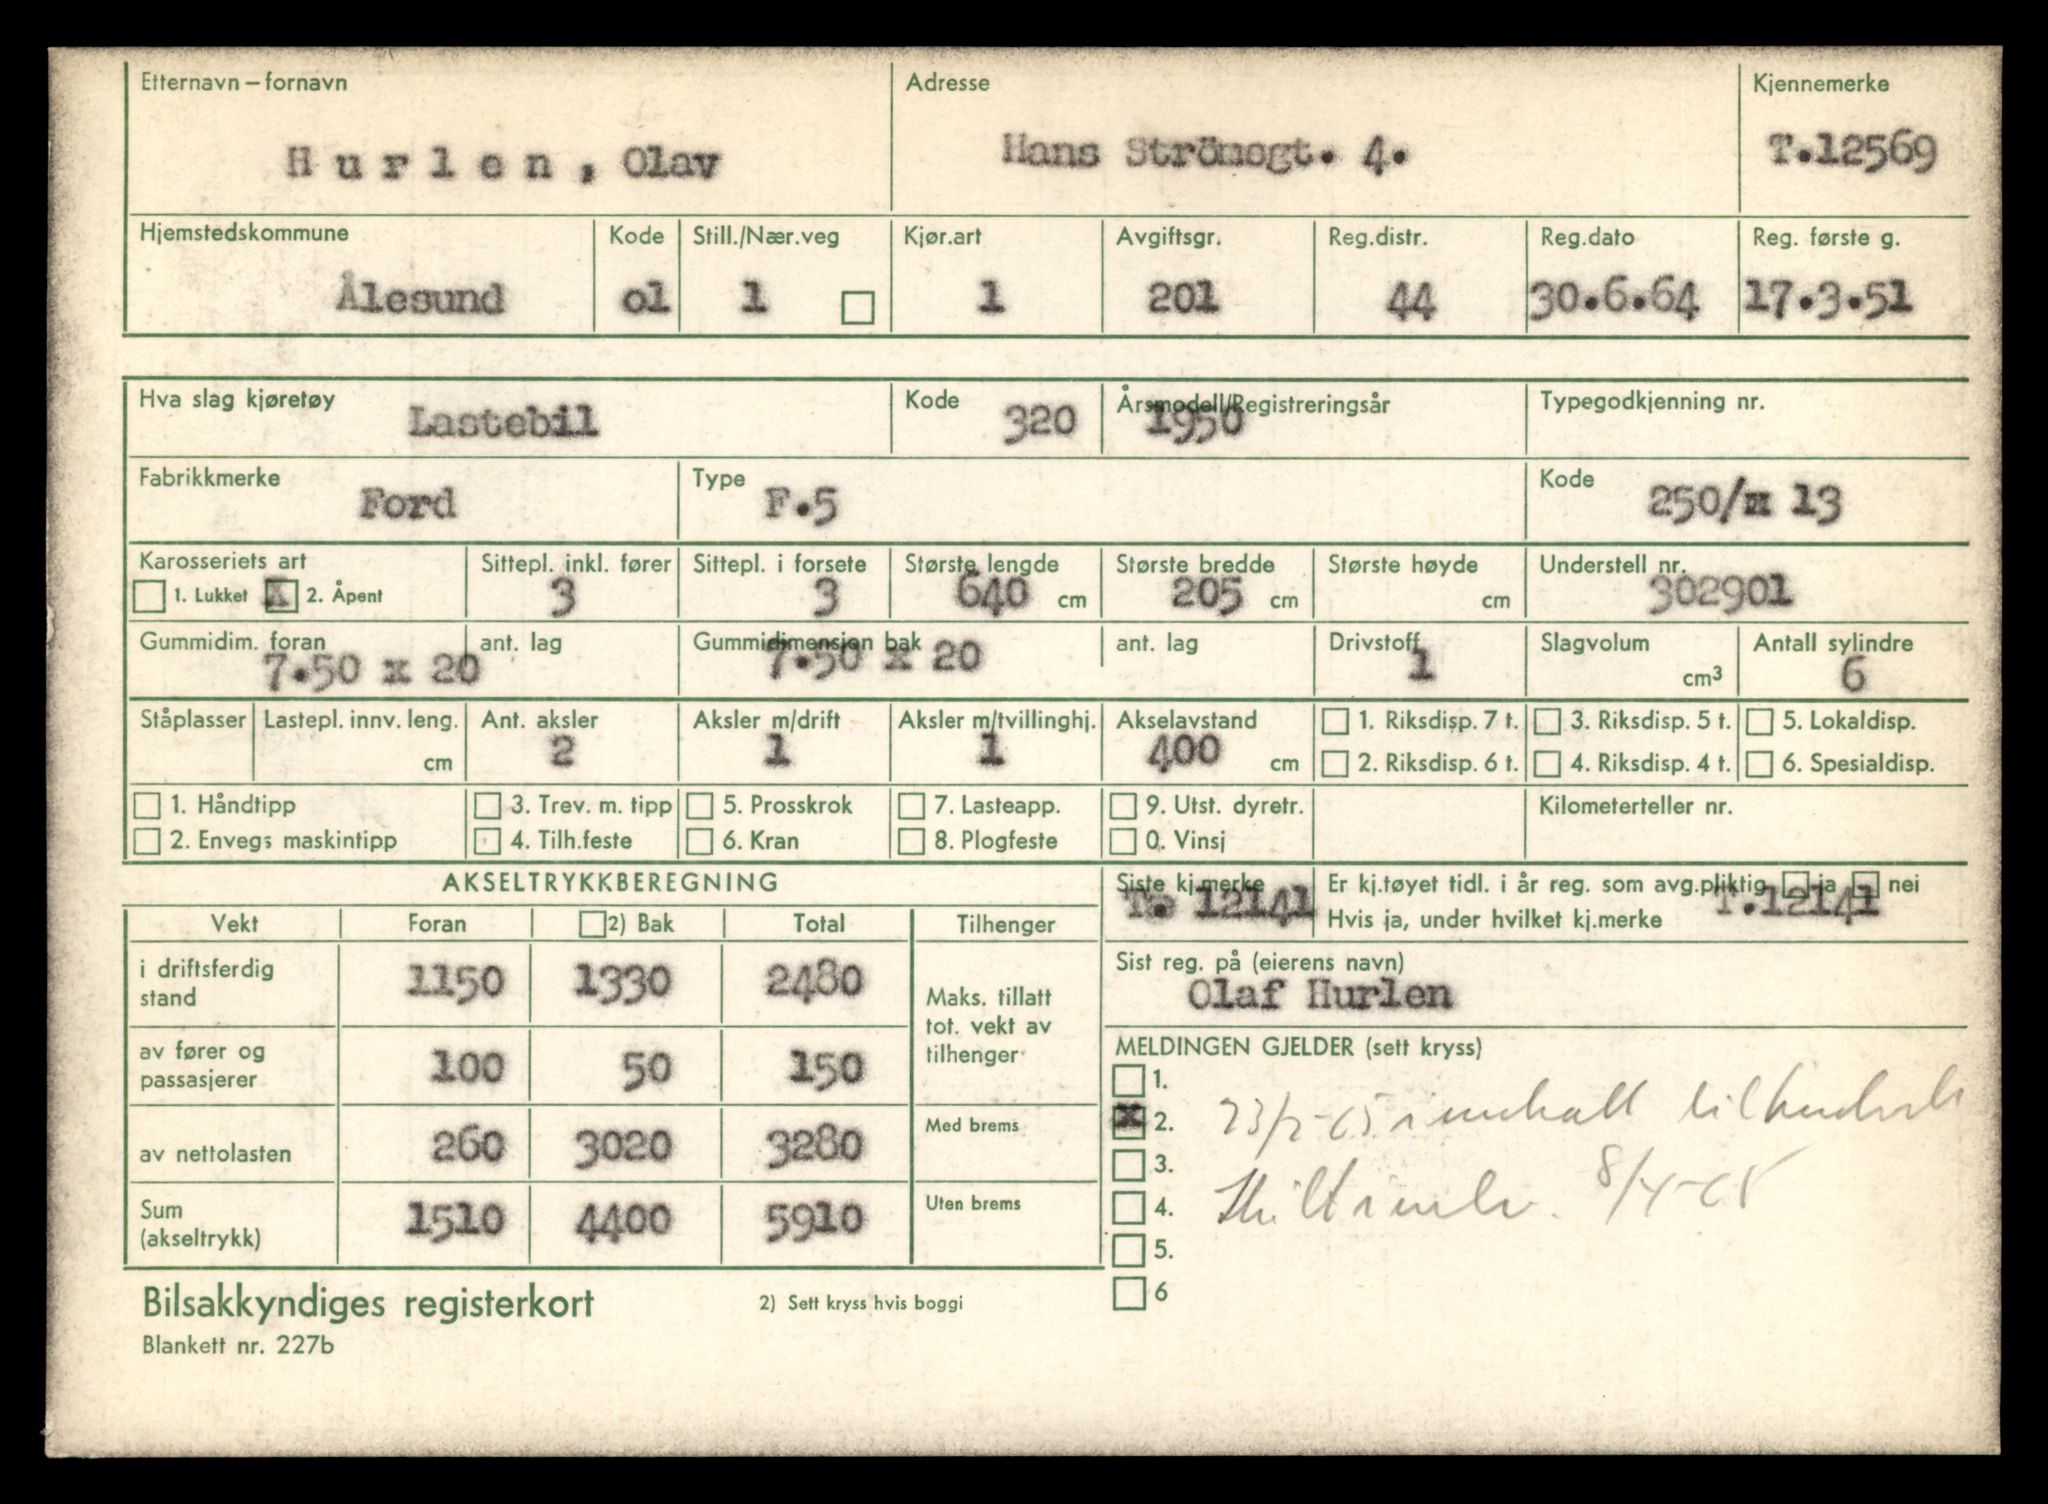 Etternavn – fornavn Adresse Kjennemerke
Hurlen, Olav Hans Strömsgt. 4. T.12569
Hjemstedskommune Kode Still./Nær.veg Kjør.art Avgiftsgr. Reg.distr. Reg.dato Reg. første g.
Ålesund 01 1 1 201 44 30.6.64 17.3.51
Hva slag kjøretøy Kode Årsmodell/Registreringsår Typegodkjenning nr.
Lastebil 320 1950
Fabrikkmerke Type Kode
Ford F.5 250/x 13
Karosseriets art Sittepl. inkl. fører Sittepl. i forsete Største lengde Største bredde Største høyde Understell nr.
1. Lukket X 2. Åpent 3 3 640 cm 205 cm cm 302901
Gummidim. foran ant. lag Gummidimensjon bak ant. lag Drivstoff Slagvolum Antall sylindre
7.50 x 20 7.50 x 20 1 cm3 6
Ståplasser Lastepl. innv. leng. Ant. aksler Aksler m/drift Aksler m/tvillinghj. Akselavstand 1. Riksdisp. 7 t. 3. Riksdisp. 5 t. 5. Lokaldisp.
cm 2 1 1 400 cm 2. Riksdisp. 6 t. 4. Riksdisp. 4 t. 6. Spesialdisp.
1. Håndtipp 3. Trev. m. tipp 5. Prosskrok 7. Lasteapp. 9. Utst. dyretr. Kilometerteller nr.
2. Envegs maskintipp 4. Tilh.feste 6. Kran 8. Plogfeste 0. Vinsj
AKSELTRYKKBEREGNING Siste kj.merke Er kj.tøyet tidl. i år reg. som avg.pliktig ja nei
T. 12141 Hvis ja, under hvilket kj.merke T.12141
Vekt Foran 2) Bak Total Tilhenger
Sist reg. på (eierens navn)
Olaf Hurlen
i driftsferdig stand 1150 1330 2480
Maks. tillatt tot. vekt av tilhenger
av fører og passasjerer 100 50 150
MELDINGEN GJELDER (sett kryss)
1.
x 2. 23/2-65
av nettolasten 260 3020 3280 Med brems
3.
4. 8/4-65
Sum (akseltrykk) 1510 4400 5910 Uten brems
5.
6
Bilsakkyndiges registerkort 2) Sett kryss hvis boggi
Blankett nr. 227b